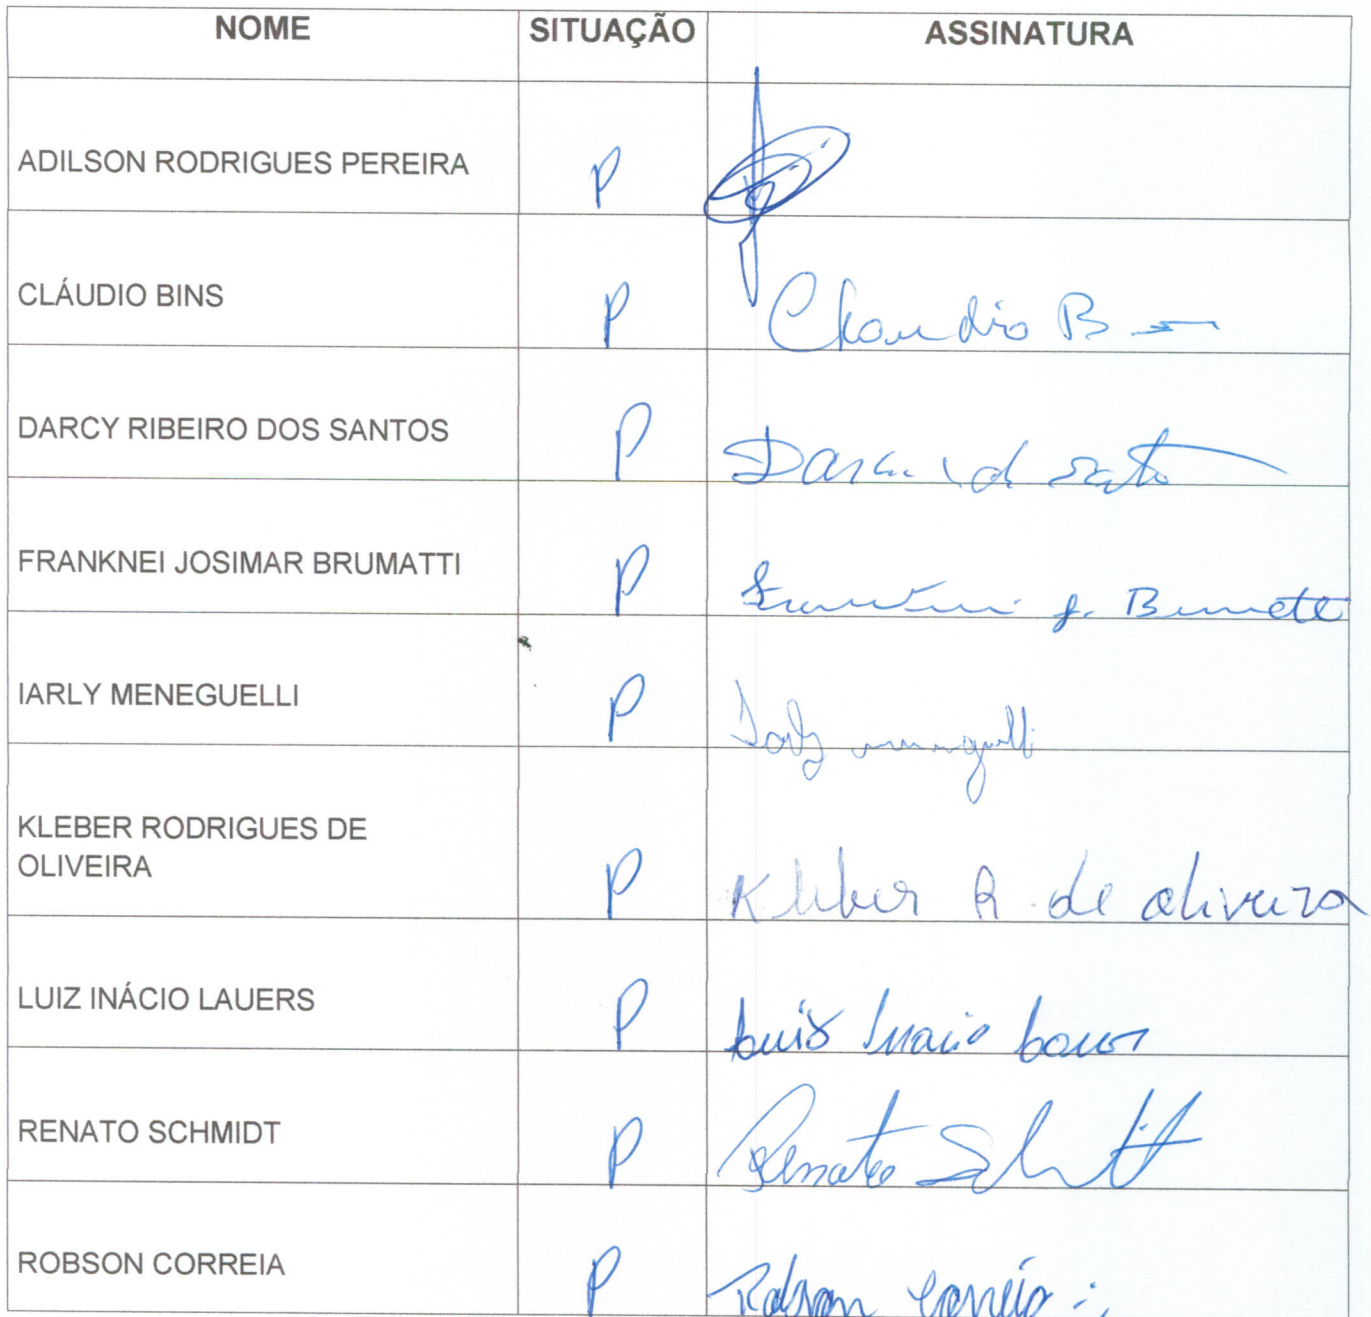 NOME SITUAÇÃO ASSINATURA
ADILSON RODRIGUES PEREIRA P
CLÁUDIO BINS P Claudio B
DARCY RIBEIRO DOS SANTOS P
FRANKNEI JOSIMAR BRUMATTI P J. B
IARLY MENEGUELLI P Iarly
KLEBER RODRIGUES DE
OLIVEIRA P Kleber R. de oliveira
LUIZ INÁCIO LAUERS P Luis Inacio
RENATO SCHMIDT P Renato
ROBSON CORREIA P Robson Correia